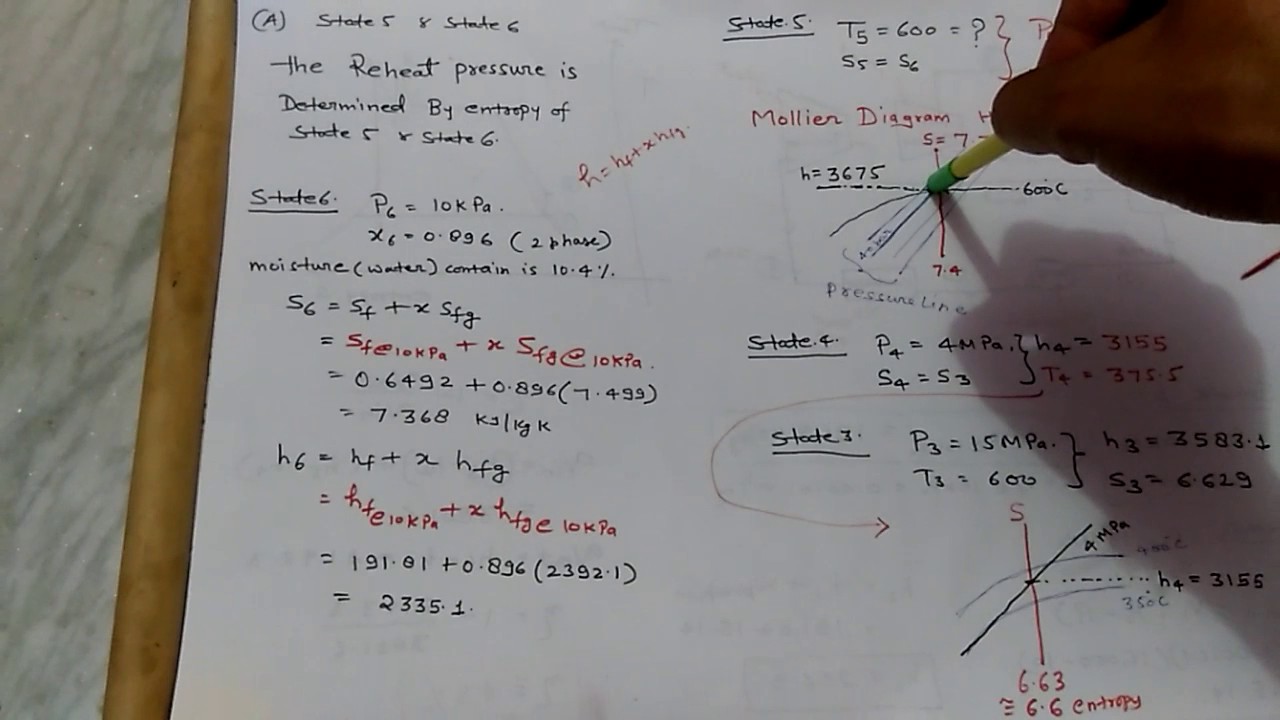 (A) State 5 & State 6
the Reheat pressure is
Determined By entropy of
State 5 & State 6.
h = hf + x hfg.
State 6. P6 = 10 KPa.
x6 = 0.896 (2 phase)
moisture (water) contain is 10.4%.
S6 = Sf + x Sfg
= Sf@10KPa + x Sfg@10KPa.
= 0.6492 + 0.896(7.499)
= 7.368 KJ/Kg K
h6 = hf + x hfg
= hf@10KPa + x hfg@10KPa
= 191.81 + 0.896(2392.1)
= 2335.1.
State.5. T5 = 600 = ? } P
S5 = S6
Mollier Diagram H
S= 7.
h = 3675
600°C
7.4
Pressure Line
State.4. P4 = 4MPa. } h4 = 3155
S4 = S3 T4 = 375.5
State 3. P3 = 15MPa. } h3 = 3583.1
T3 = 600 S3 = 6.629
S
4 MPa
400°C
h4 = 3155
350°C
6.63
≅ 6.6 entropy